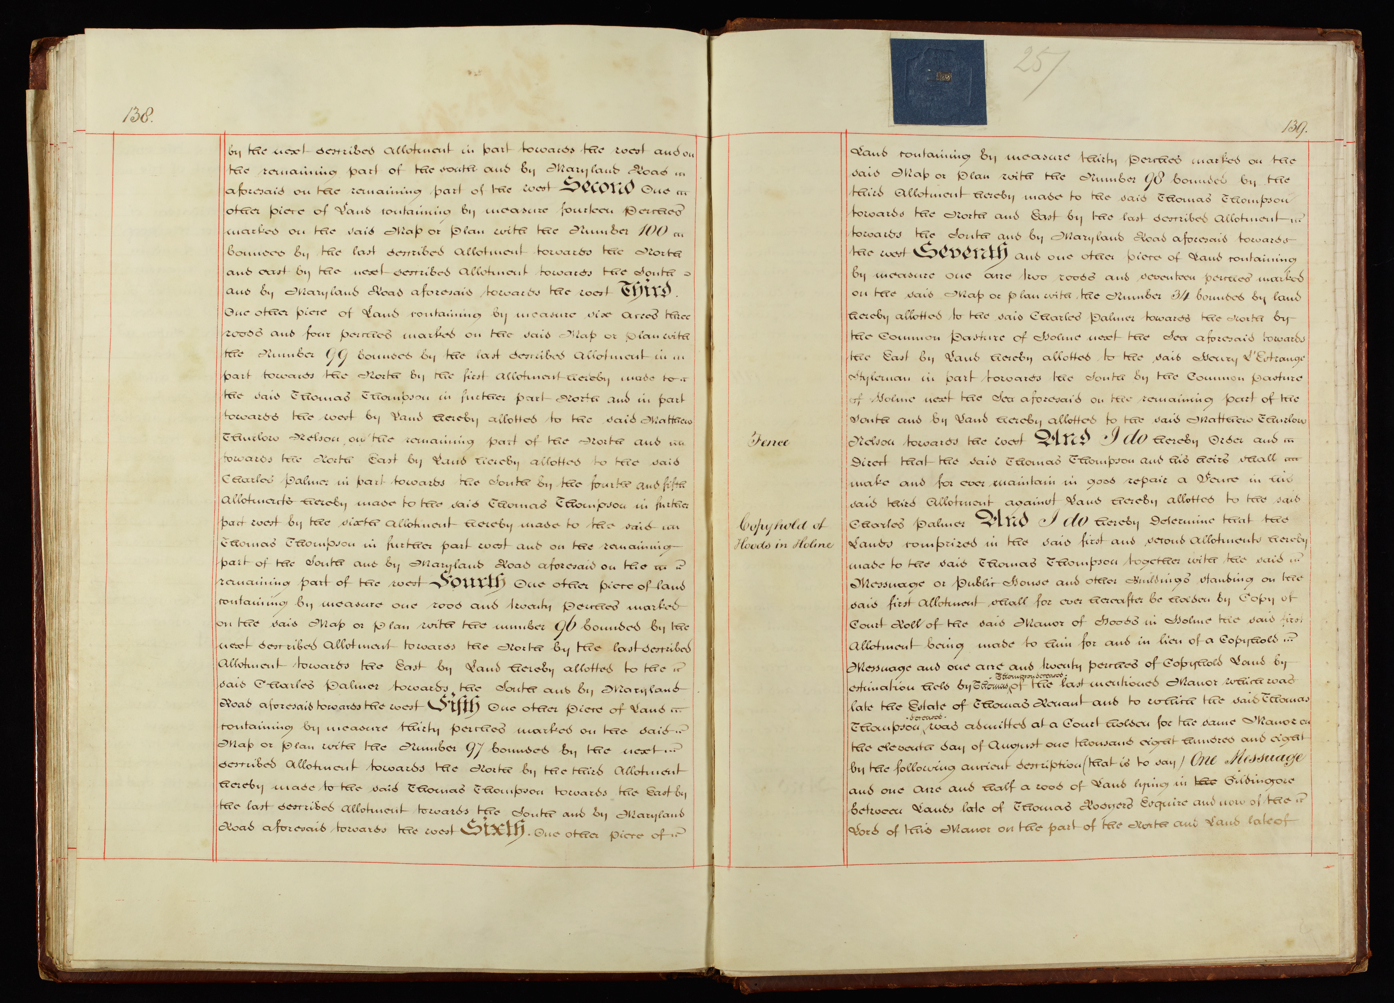 138.
by the next described Allotment in part towards the west and on
the remaining part of the South and by Maryland Road
aforesaid on the remaining part of the west Second One
other piece of Land containing by measure fourteen Perches
marked on the said Map or Plan with the Number 100
bounded by the last described Allotment towards the North
and east by the next described Allotment towards the South
and by Maryland Road aforesaid towards the west Third.
One other piece of Land containing by measure six Acres three
roods and four perches marked on the said Map or Plan with
the Number 99 bounded by the last described Allotment in
part towards the North by the first Allotment hereby made to
the said Thomas Thompson in further part North and in part
towards the west by Land hereby allotted to the said Matthew
Thurlow Nelson on the remaining part of the North and
towards the North East by Land hereby allotted to the said
Charles Palmer in part towards the South by the fourth and fifth
Allotments hereby made to the said Thomas Thompson in further
part west by the sixth Allotment hereby made to the said
Thomas Thompson in further part west and on the remaining
part of the South and by Maryland Road aforesaid on the
remaining part of the west Fourth One other piece of land
containing by measure one rood and twenty Perches marked
on the said Map or Plan with the number 96 bounded by the
next described Allotment towards the North by the last described
Allotment towards the East by Land hereby allotted to the
said Charles Palmer towards the South and by Maryland
Road aforesaid towards the west Fifth One other Piece of Land
containing by measure thirty perches marked on the said
Map or Plan with the Number 97 bounded by the next
described Allotment towards the North by the third Allotment
hereby made to the said Thomas Thompson towards the East by
the last described Allotment towards the South and by Maryland
Road aforesaid towards the west Sixth. One other piece of
257
139.
Land containing by measure thirty Perches marked on the
said Map or Plan with the Number 98 bounded by the
third Allotment hereby made to the said Thomas Thompson
towards the North and East by the last described Allotment
towards the South and by Maryland Road aforesaid towards
the west Seventh and one other piece of Land containing
by measure one acre two roods and seventeen perches marked
on the said Map or plan with the Number 34 bounded by land
hereby allotted to the said Charles Palmer towards the North by
the Common Pasture of Holme next the Sea aforesaid towards
the East by Land hereby allotted to the said Henry L'Estrange
Styleman in part towards the South by the Common Pasture
of Holme next the Sea aforesaid on the remaining part of the
South and by Land hereby allotted to the said Matthew Thurlow
Fence
Nelson towards the west And I do hereby Order and
Direct that the said Thomas Thompson and his heirs shall
make and for ever maintain in good repair a Fence in his
said third Allotment against Land hereby allotted to the said
Copyhold of
Hoods in Holme
Charles Palmer And I do hereby Determine that the
Lands comprized in the said first and second Allotments hereby
made to the said Thomas Thompson together with the said
Messuage or Public House and other Buildings standing on the
said first Allotment shall for ever hereafter be holden by Copy of
Court Roll of the said Manor of Hoods in Holme the said first
Allotment being made to him for and in lieu of a Copyhold
Messuage and one acre and twenty perches of Copyhold Land by
Thompson deceased
estimation held by Thomas of the last mentioned Manor which was
late the Estate of Thomas Renant and to which the said Thomas
deceased
Thompson was admitted at a Court holden for the same Manor on
the eleventh day of August one thousand eight hundred and eight
by the following ancient description (that is to say) One Messuage
and one Acre and half a rood of Land lying in the Gildingore
between Lands late of Thomas Rogers Esquire and now of the
Lord of this Manor on the part of the North and Land late of